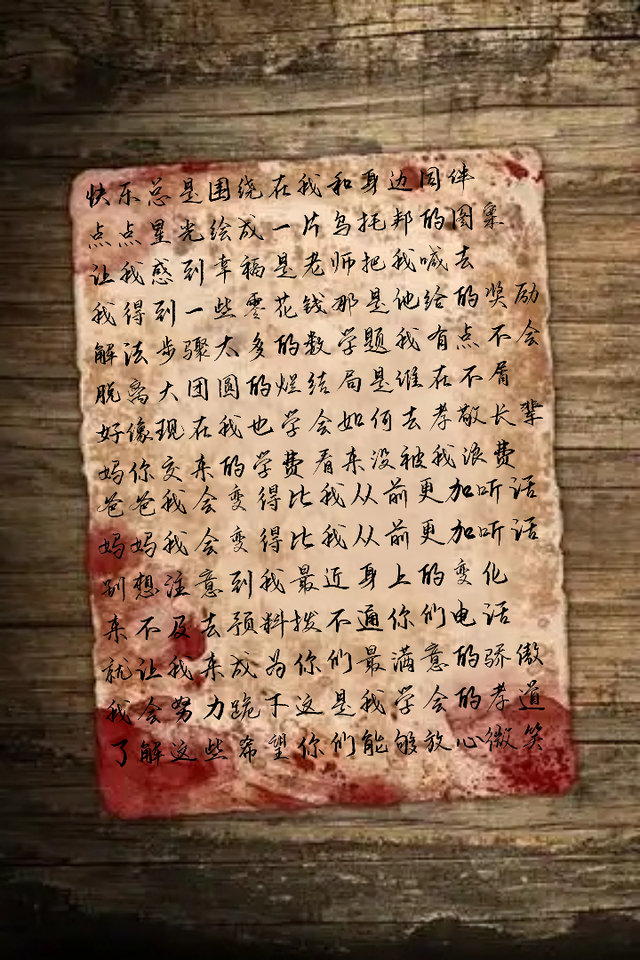 快乐总是围绕在我和身边同伴
点点星光绘成一片乌托邦的图案
让我感到幸福是老师把我喊去
我得到一些零花钱那是他给的奖励
解法步骤太多的数学题我有点不会
脱离大团圆的烂结局是谁在不屑
好像现在我也学会如何去孝敬长辈
妈你交来的学费看来没被我浪费
爸爸我会变得比我从前更加听话
妈妈我会变得比我从前更加听话
别想注意到我最近身上的变化
来不及去预料拨不通你们电话
就让我来成为你们最满意的骄傲
我会努力跪下这是我学会的孝道
了解这些希望你们能够放心微笑